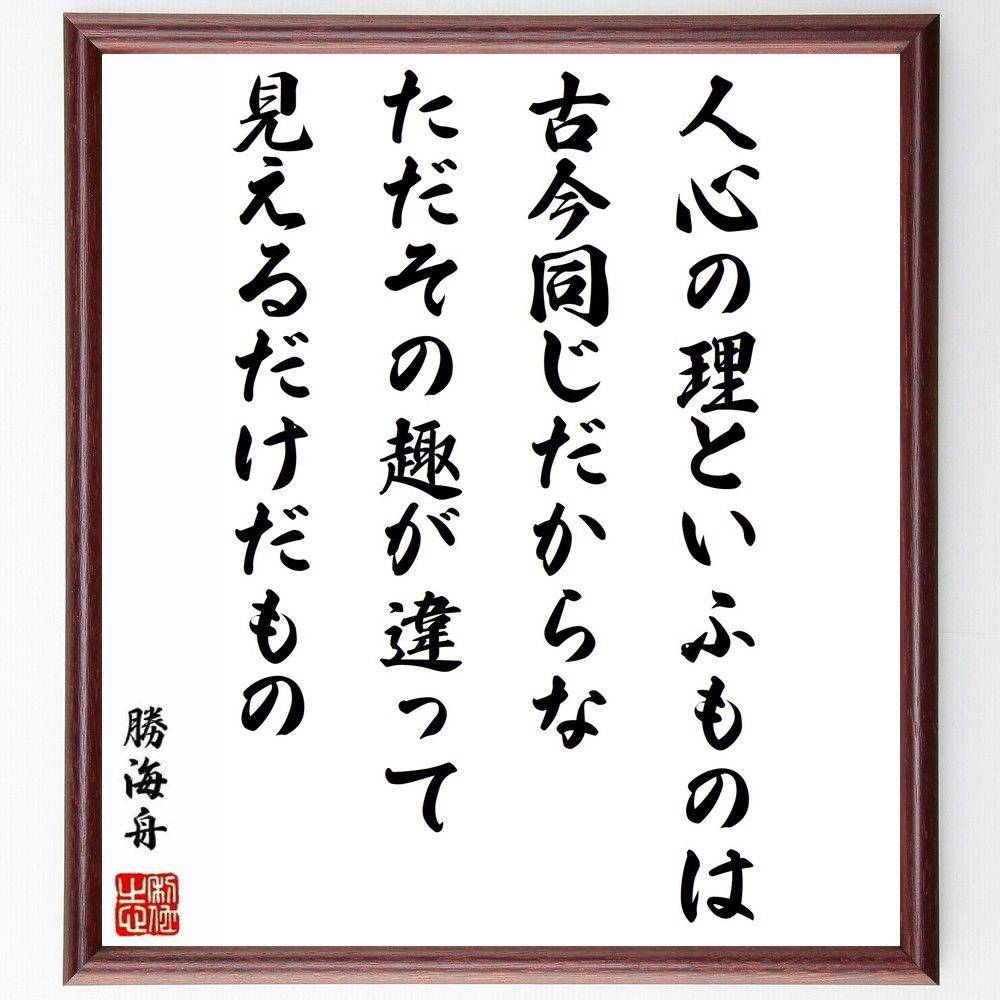 人心の理といふものは
古今同じだからな
ただその趣が違って
見えるだけだもの
勝海舟